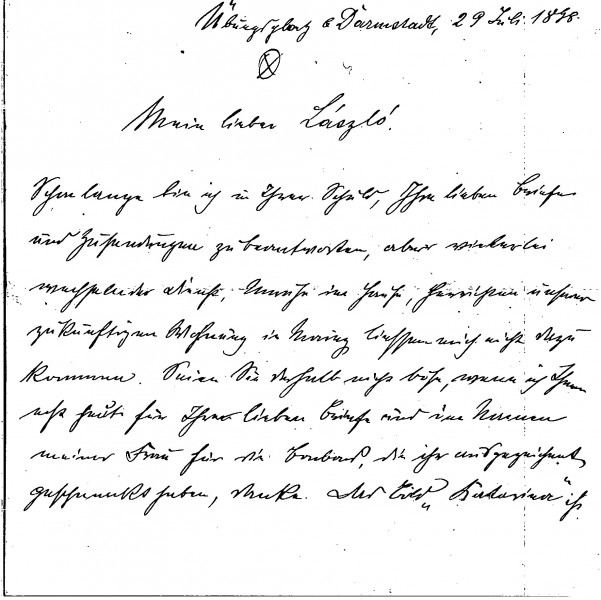 Übungsplatz b Darmstadt, 29 Juli 1898.
Mein lieber László!
Schon lange bin ich in Ihrer Schuld, Ihre lieben Briefe
und Zusendungen zu beantworten, aber vielerlei
wechselnder Dienst, Unruhe im Hause, Herrichten unserer
zukünftigen Wohnung in Mainz liessen mich nicht dazu
kommen. Seien Sie deshalb nicht böse, wenn ich Ihnen
erst heute für Ihre lieben Briefe und im Namen
meiner Frau für die Bonbons, die ihr ausgezeichnet
geschmeckt haben, danke. Das Bild „Katarina" ist